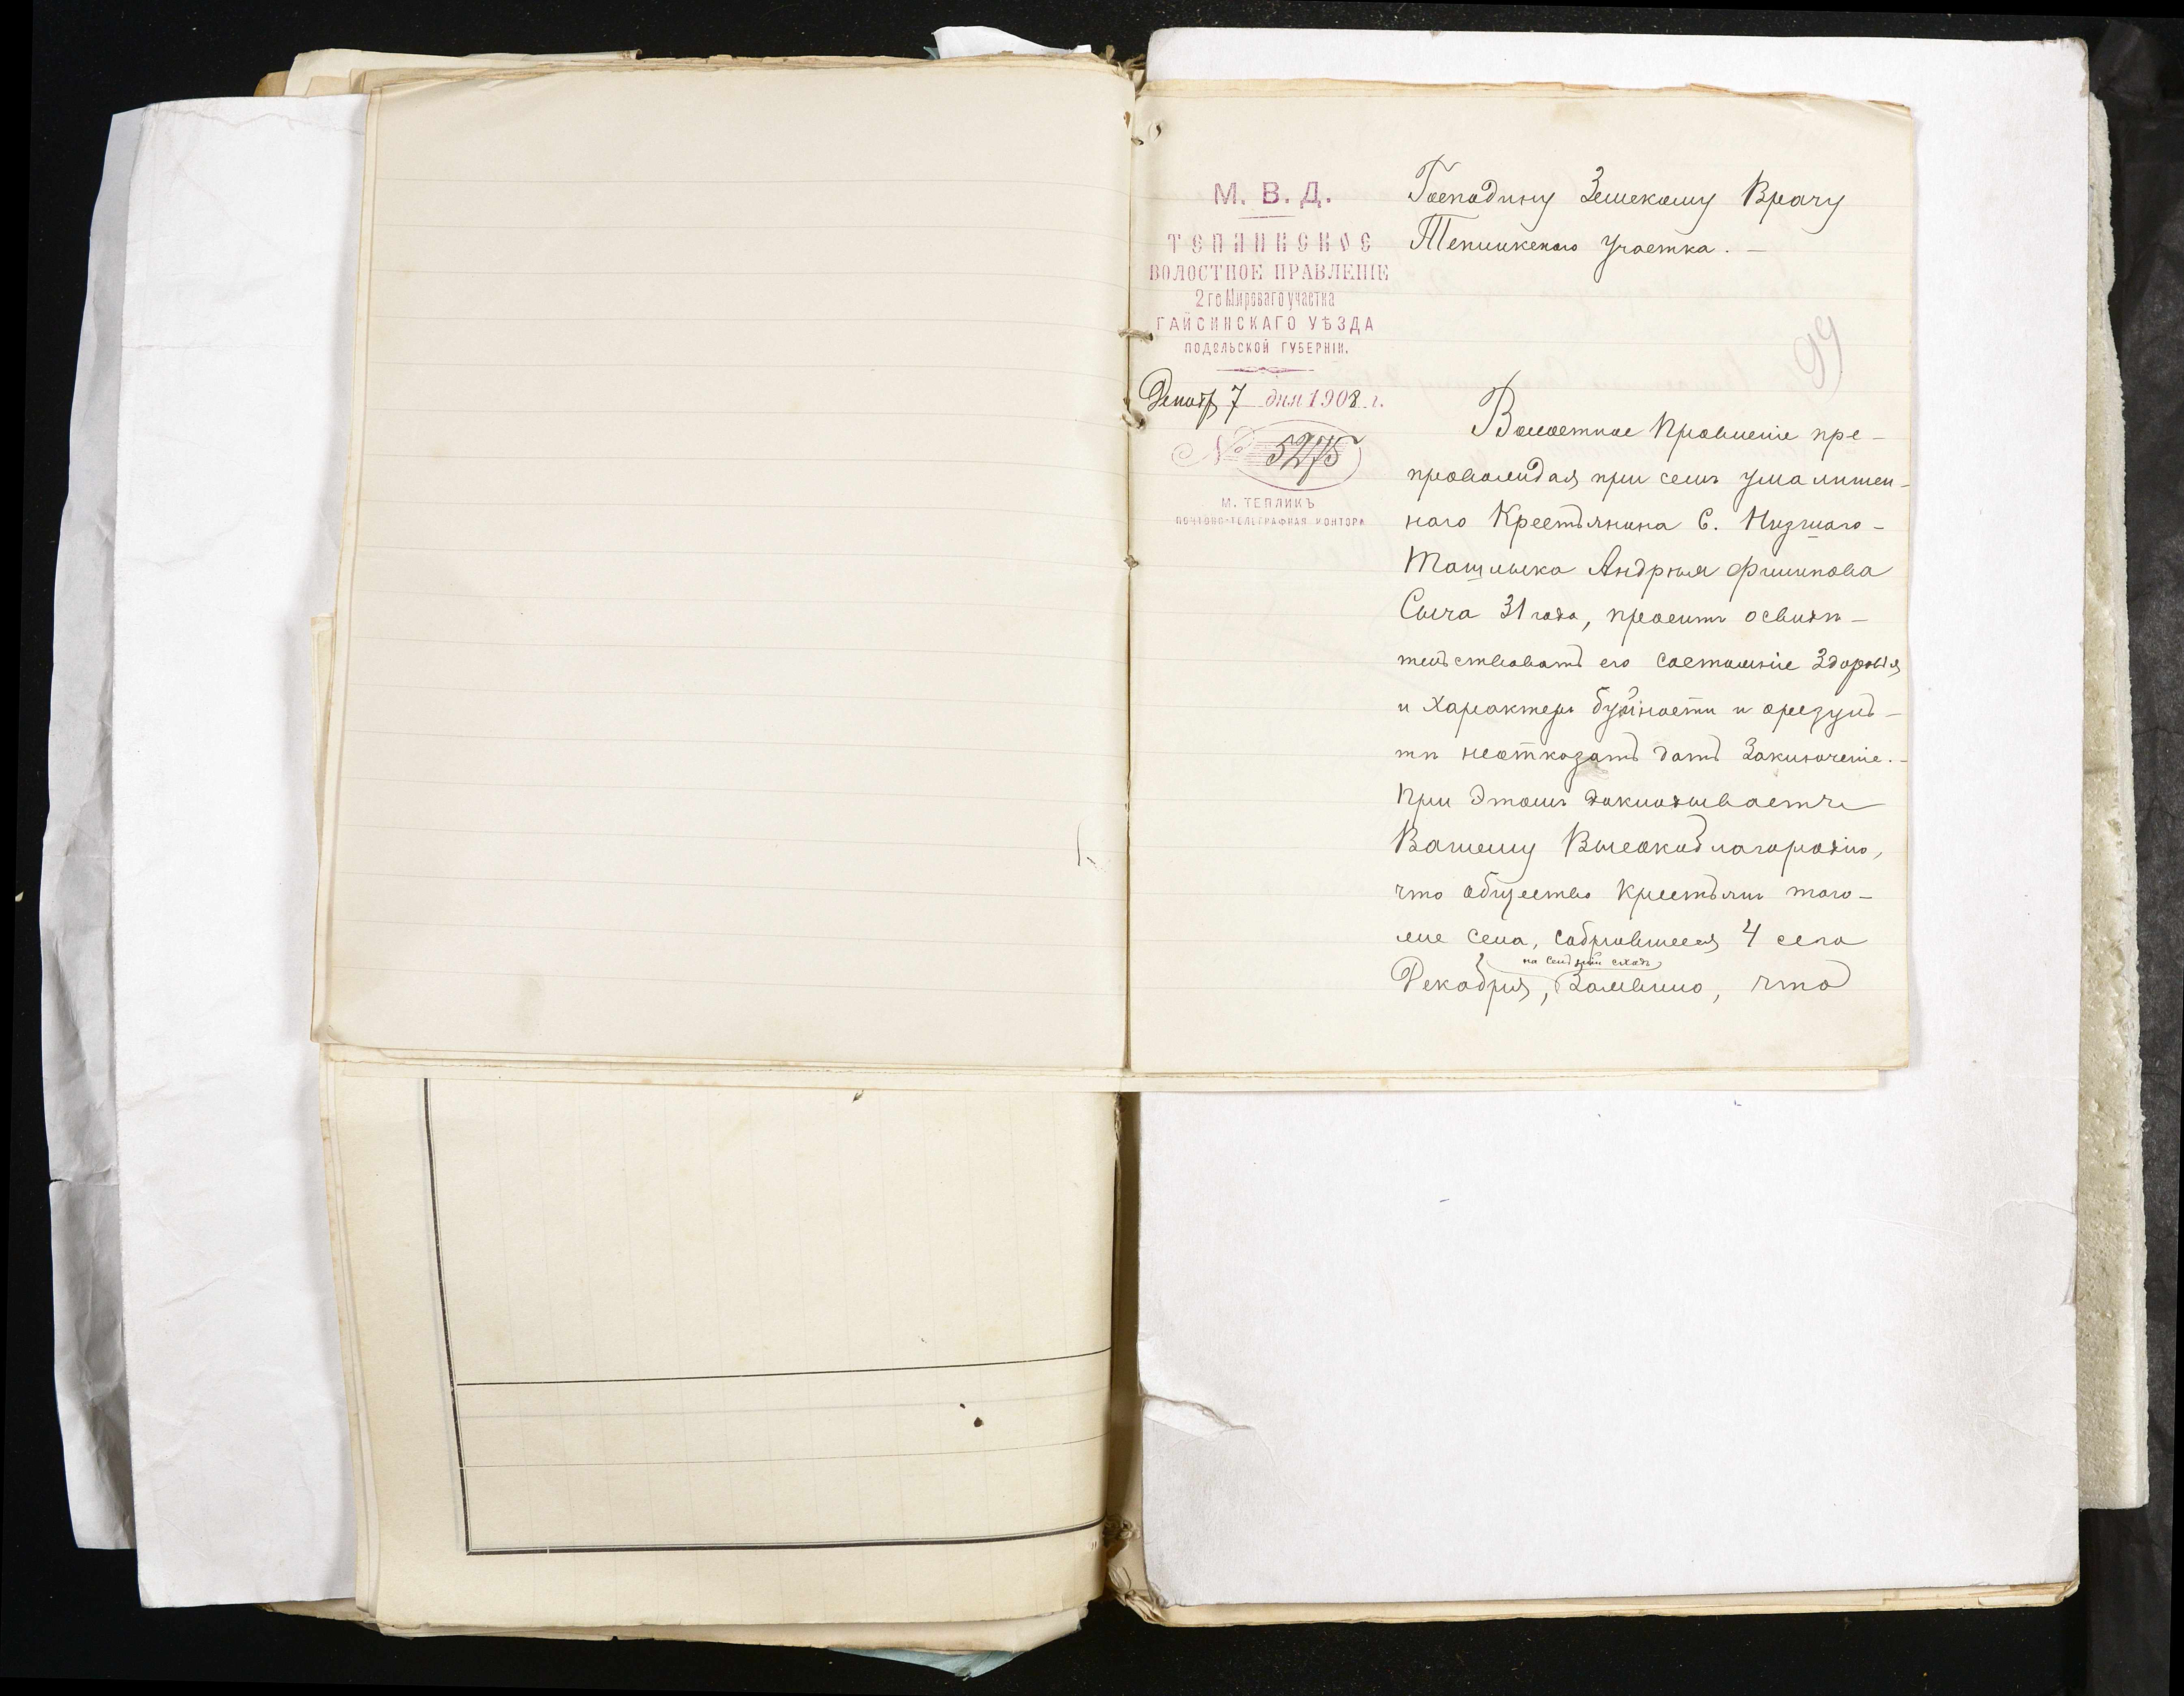 М. В. Д.
ТЕПЛИКСКОЕ
ВОЛОСТНОЕ ПРАВЛЕНІЕ
2го Мироваго участка
ГАЙСИНСКАГО УѢЗДА
ПОДОЛЬСКОЙ ГУБЕРНІИ.
Декабр 7 дня 1908 г.
№ 5275
М. ТЕПЛИКЪ
ПОЧТОВО-ТЕЛЕГРАФНАЯ КОНТОРА
Господину Земскому Врачу
Тепликскаго Участка. —
99
Волостное Правленіе пре-
провождая при семъ умалишен-
наго Крестьянина С. Нижняго-
Ташлыка Андрѣя Филипова
Сыча 31 года, проситъ освидѣ-
тельствовать его состояніе здоровія
и характеръ буйности и орезуль-
тѣ неотказать дать Заключеніе. -
При этомъ докладывается
Вашему Высокоблагородію,
что общество Крестьянъ того-
же села, собравшееся 4 сего
на сельскій сходъ
Декабря, Заявило, что